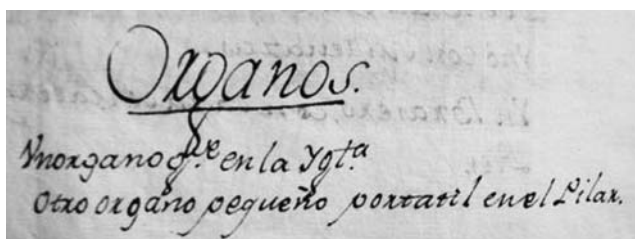 Organos.
Vn organo g.e en la Ygl.a
Otro organo pequeño portatil en el Pilar.